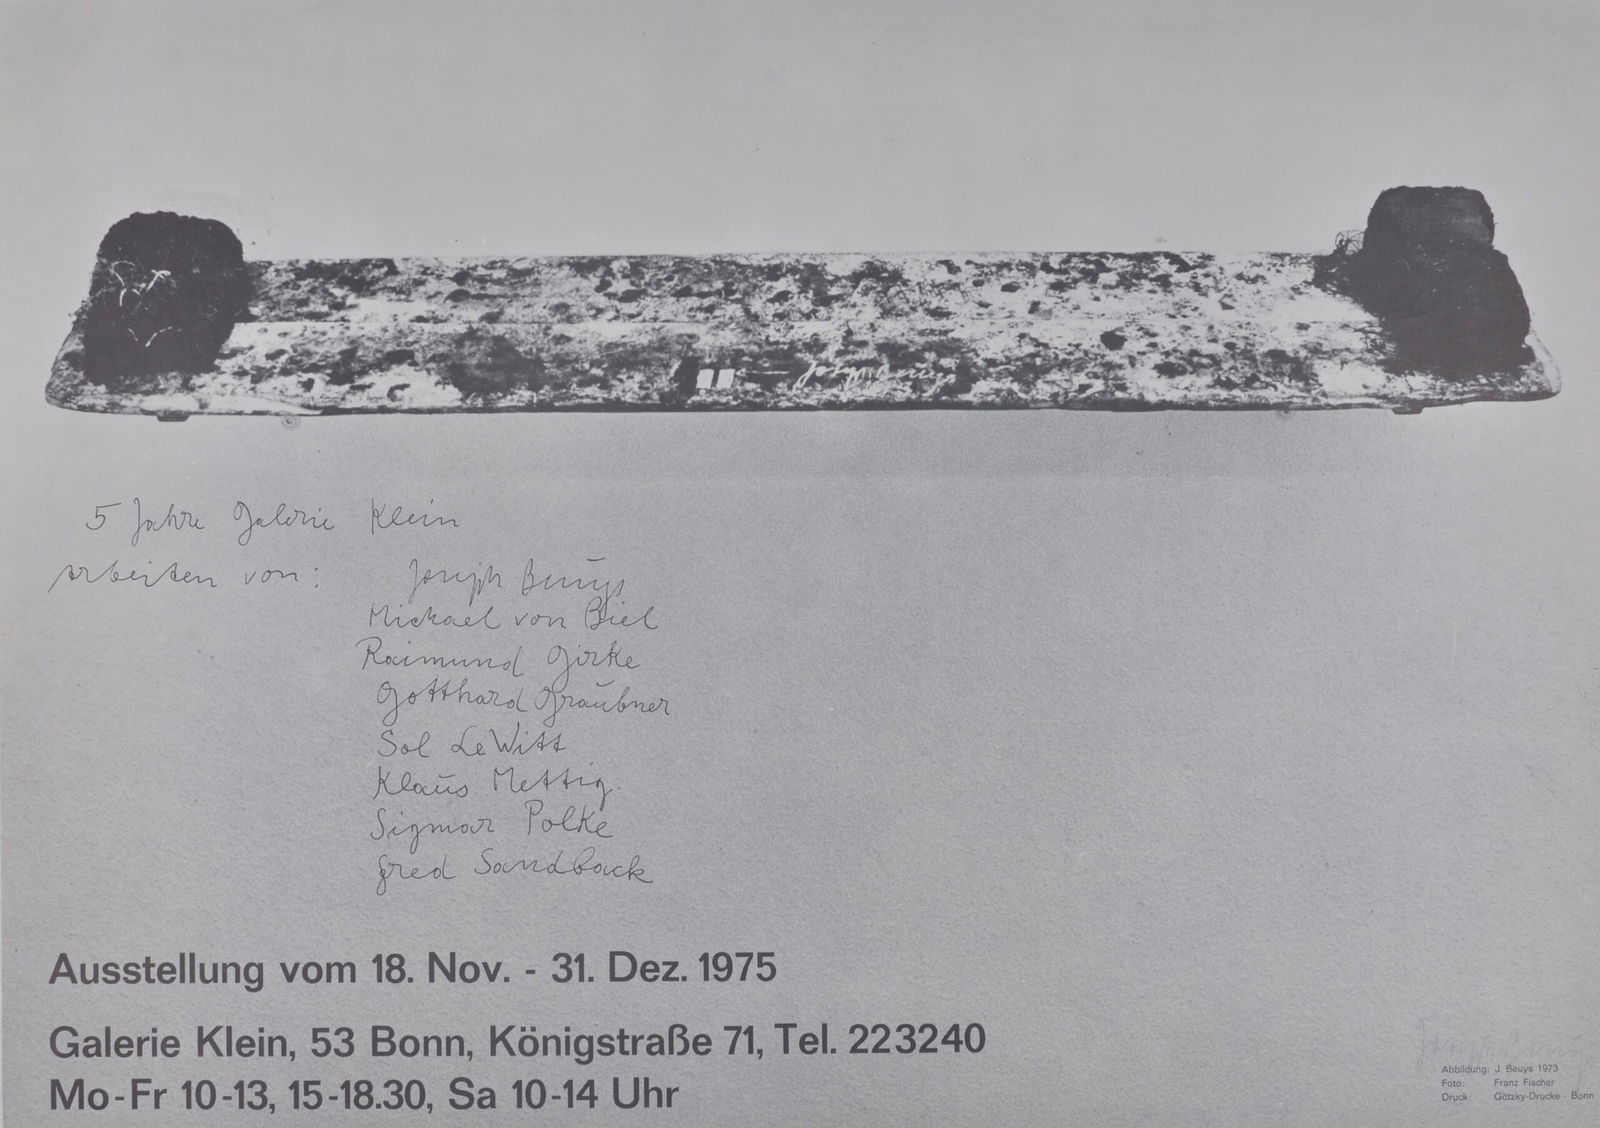 Joseph Beuys
5 Jahre Galerie Klein
Arbeiten von: Joseph Beuys
Michael von Biel
Raimund Girke
Gotthard Graubner
Sol LeWitt
Klaus Mettig
Sigmar Polke
Fred Sandback
Ausstellung vom 18. Nov. - 31. Dez. 1975
Galerie Klein, 53 Bonn, Königstraße 71, Tel. 223240
Mo-Fr 10-13, 15-18.30, Sa 10-14 Uhr
Joseph Beuys
Abbildung: J. Beuys 1973
Foto: Franz Fischer
Druck: Götzky-Drucke - Bonn